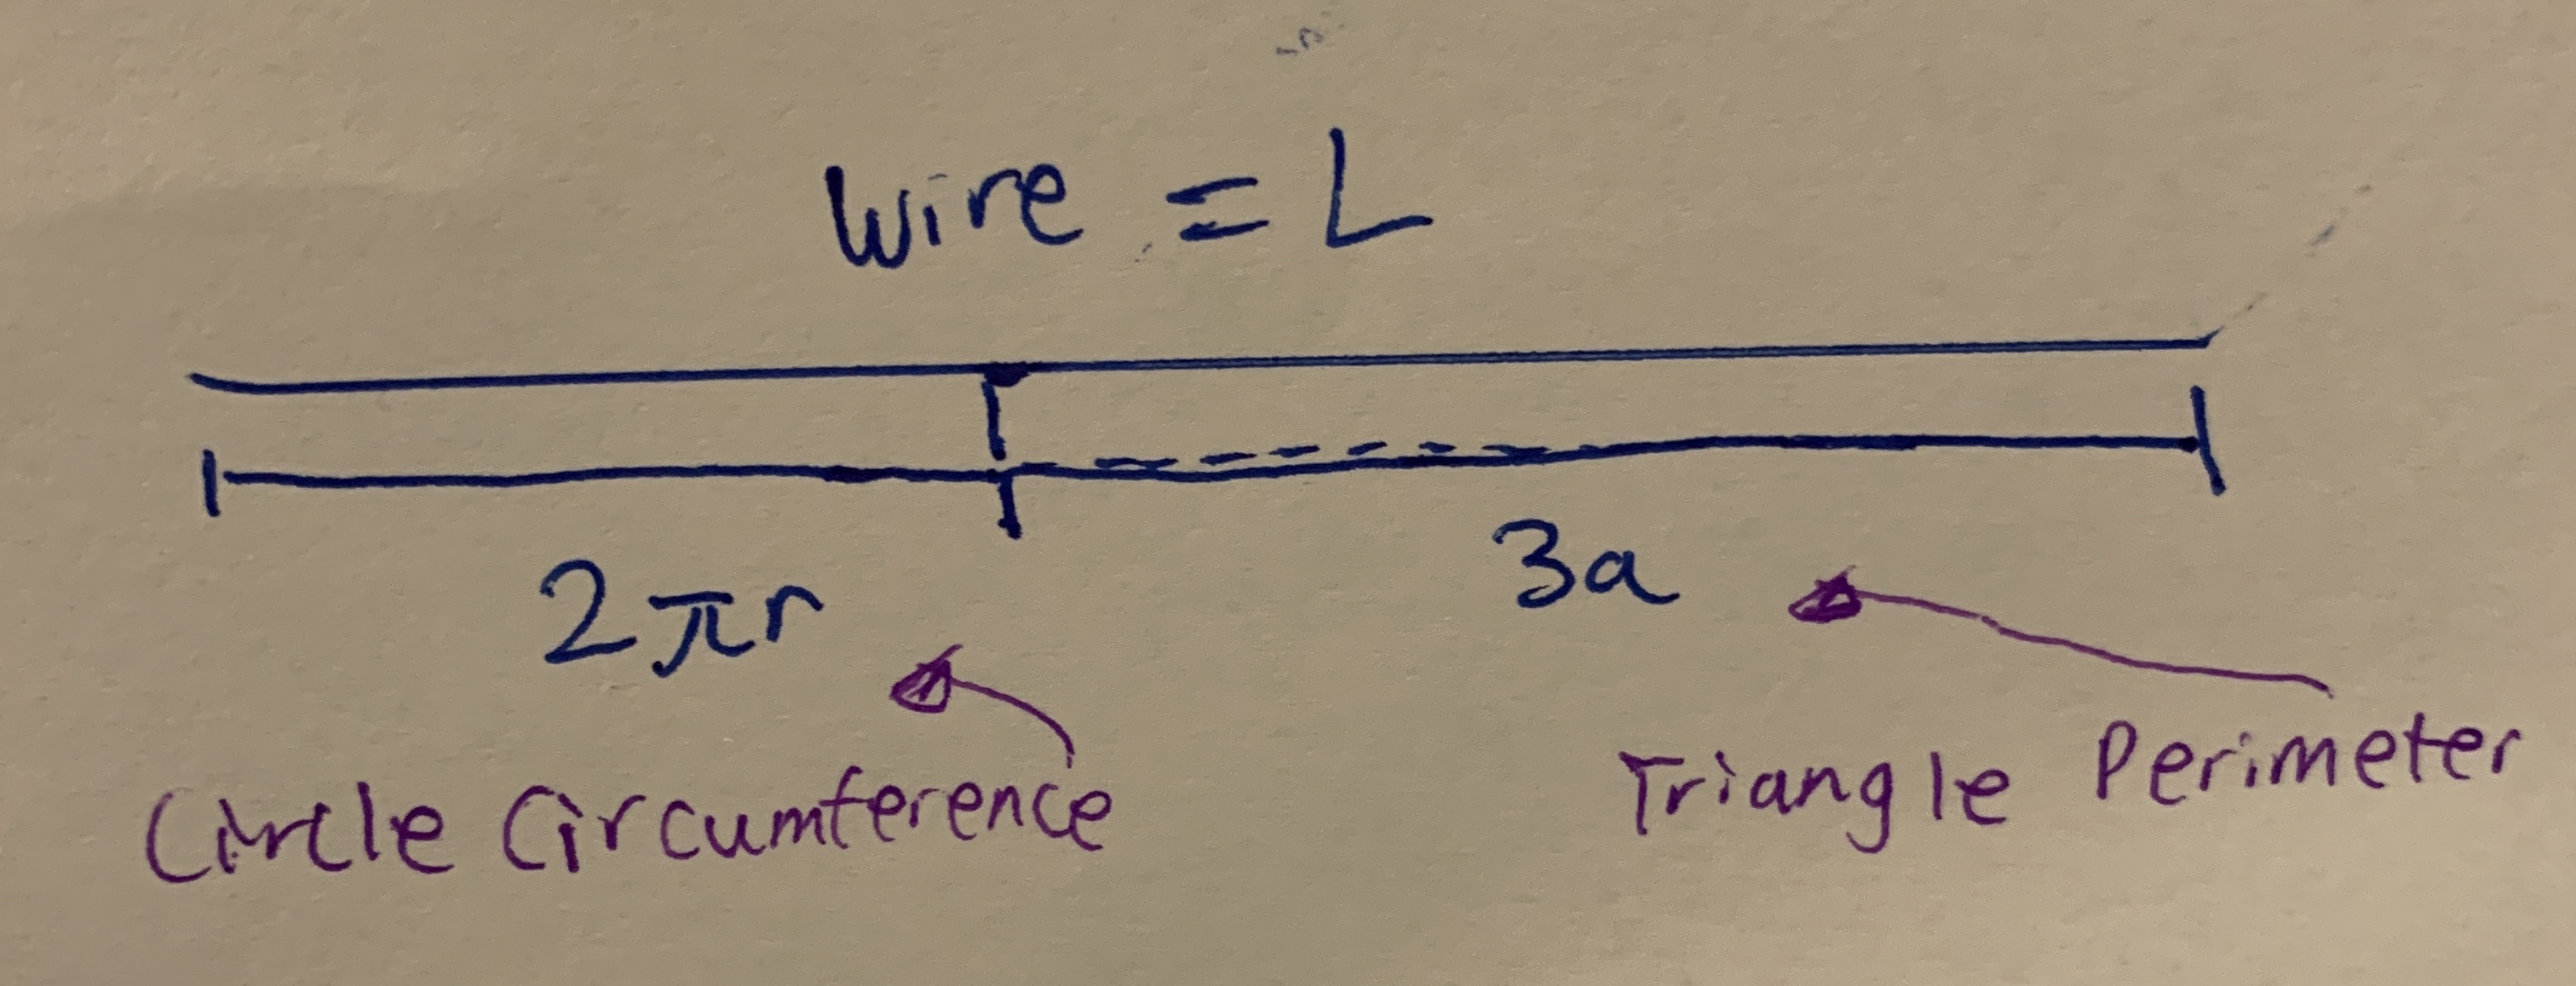 Wire = L
2πr
3a
Circle Circumference
Triangle Perimeter